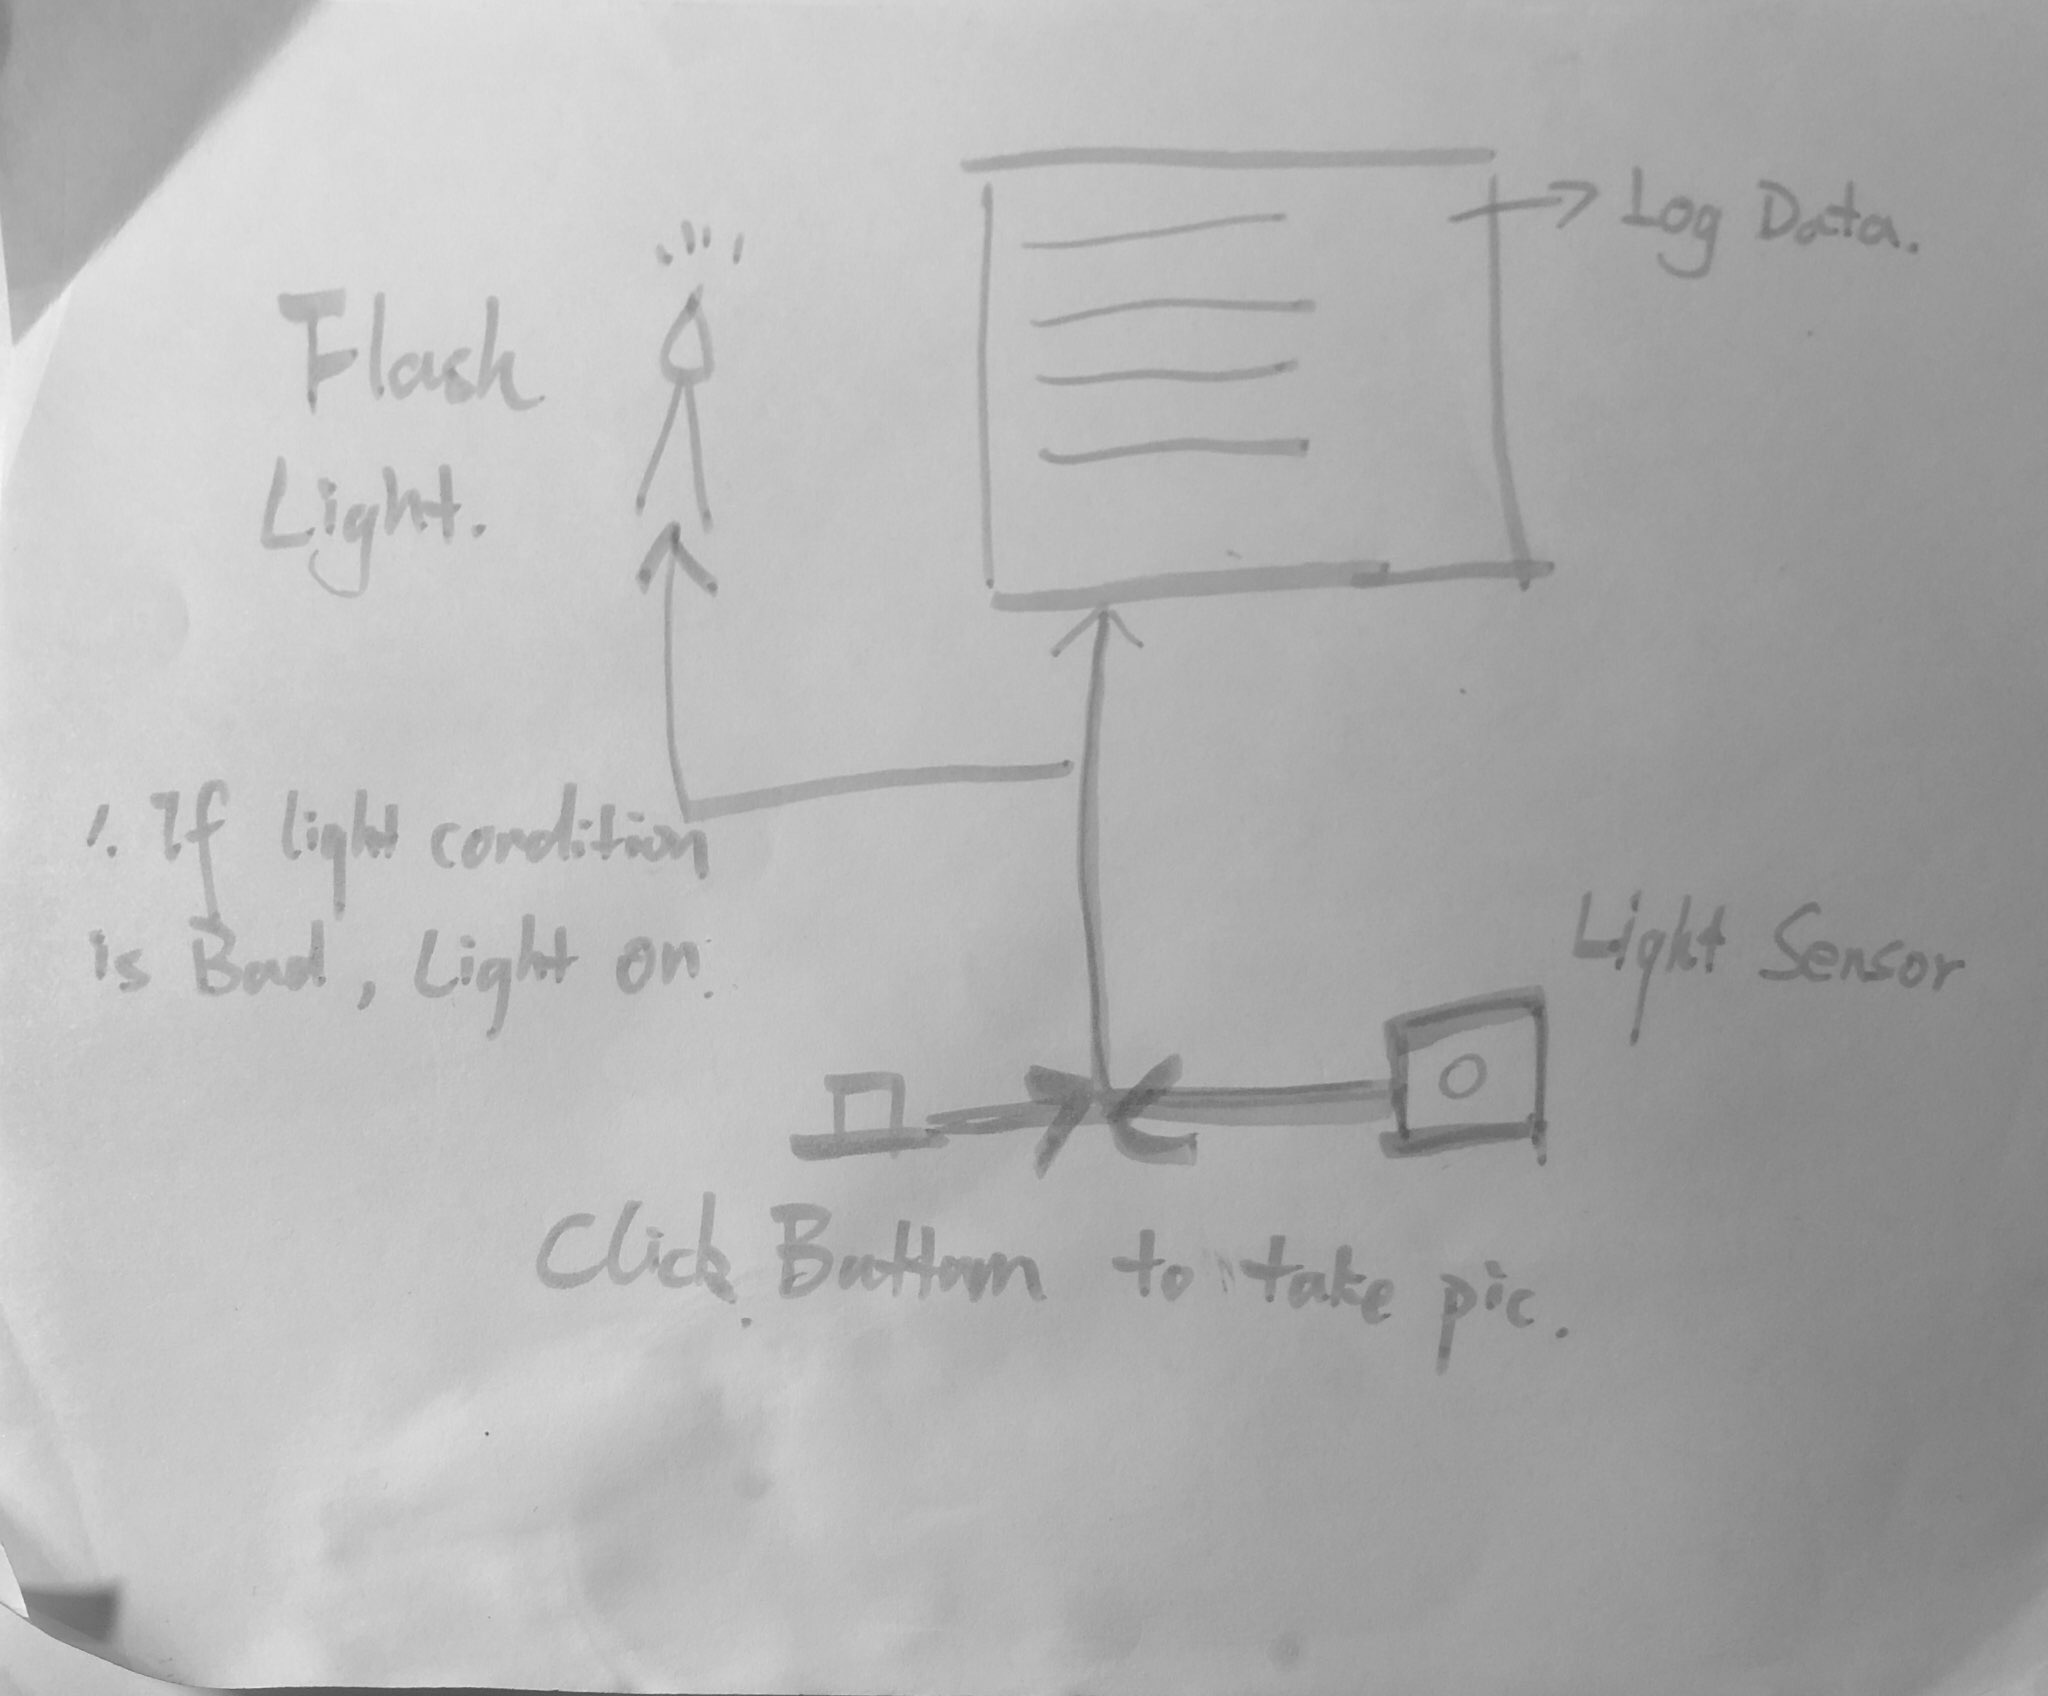 Log Data.
Flash
Light.
1. If light condition
is Bad, Light on.
Light Sensor
Click Buttom to take pic.